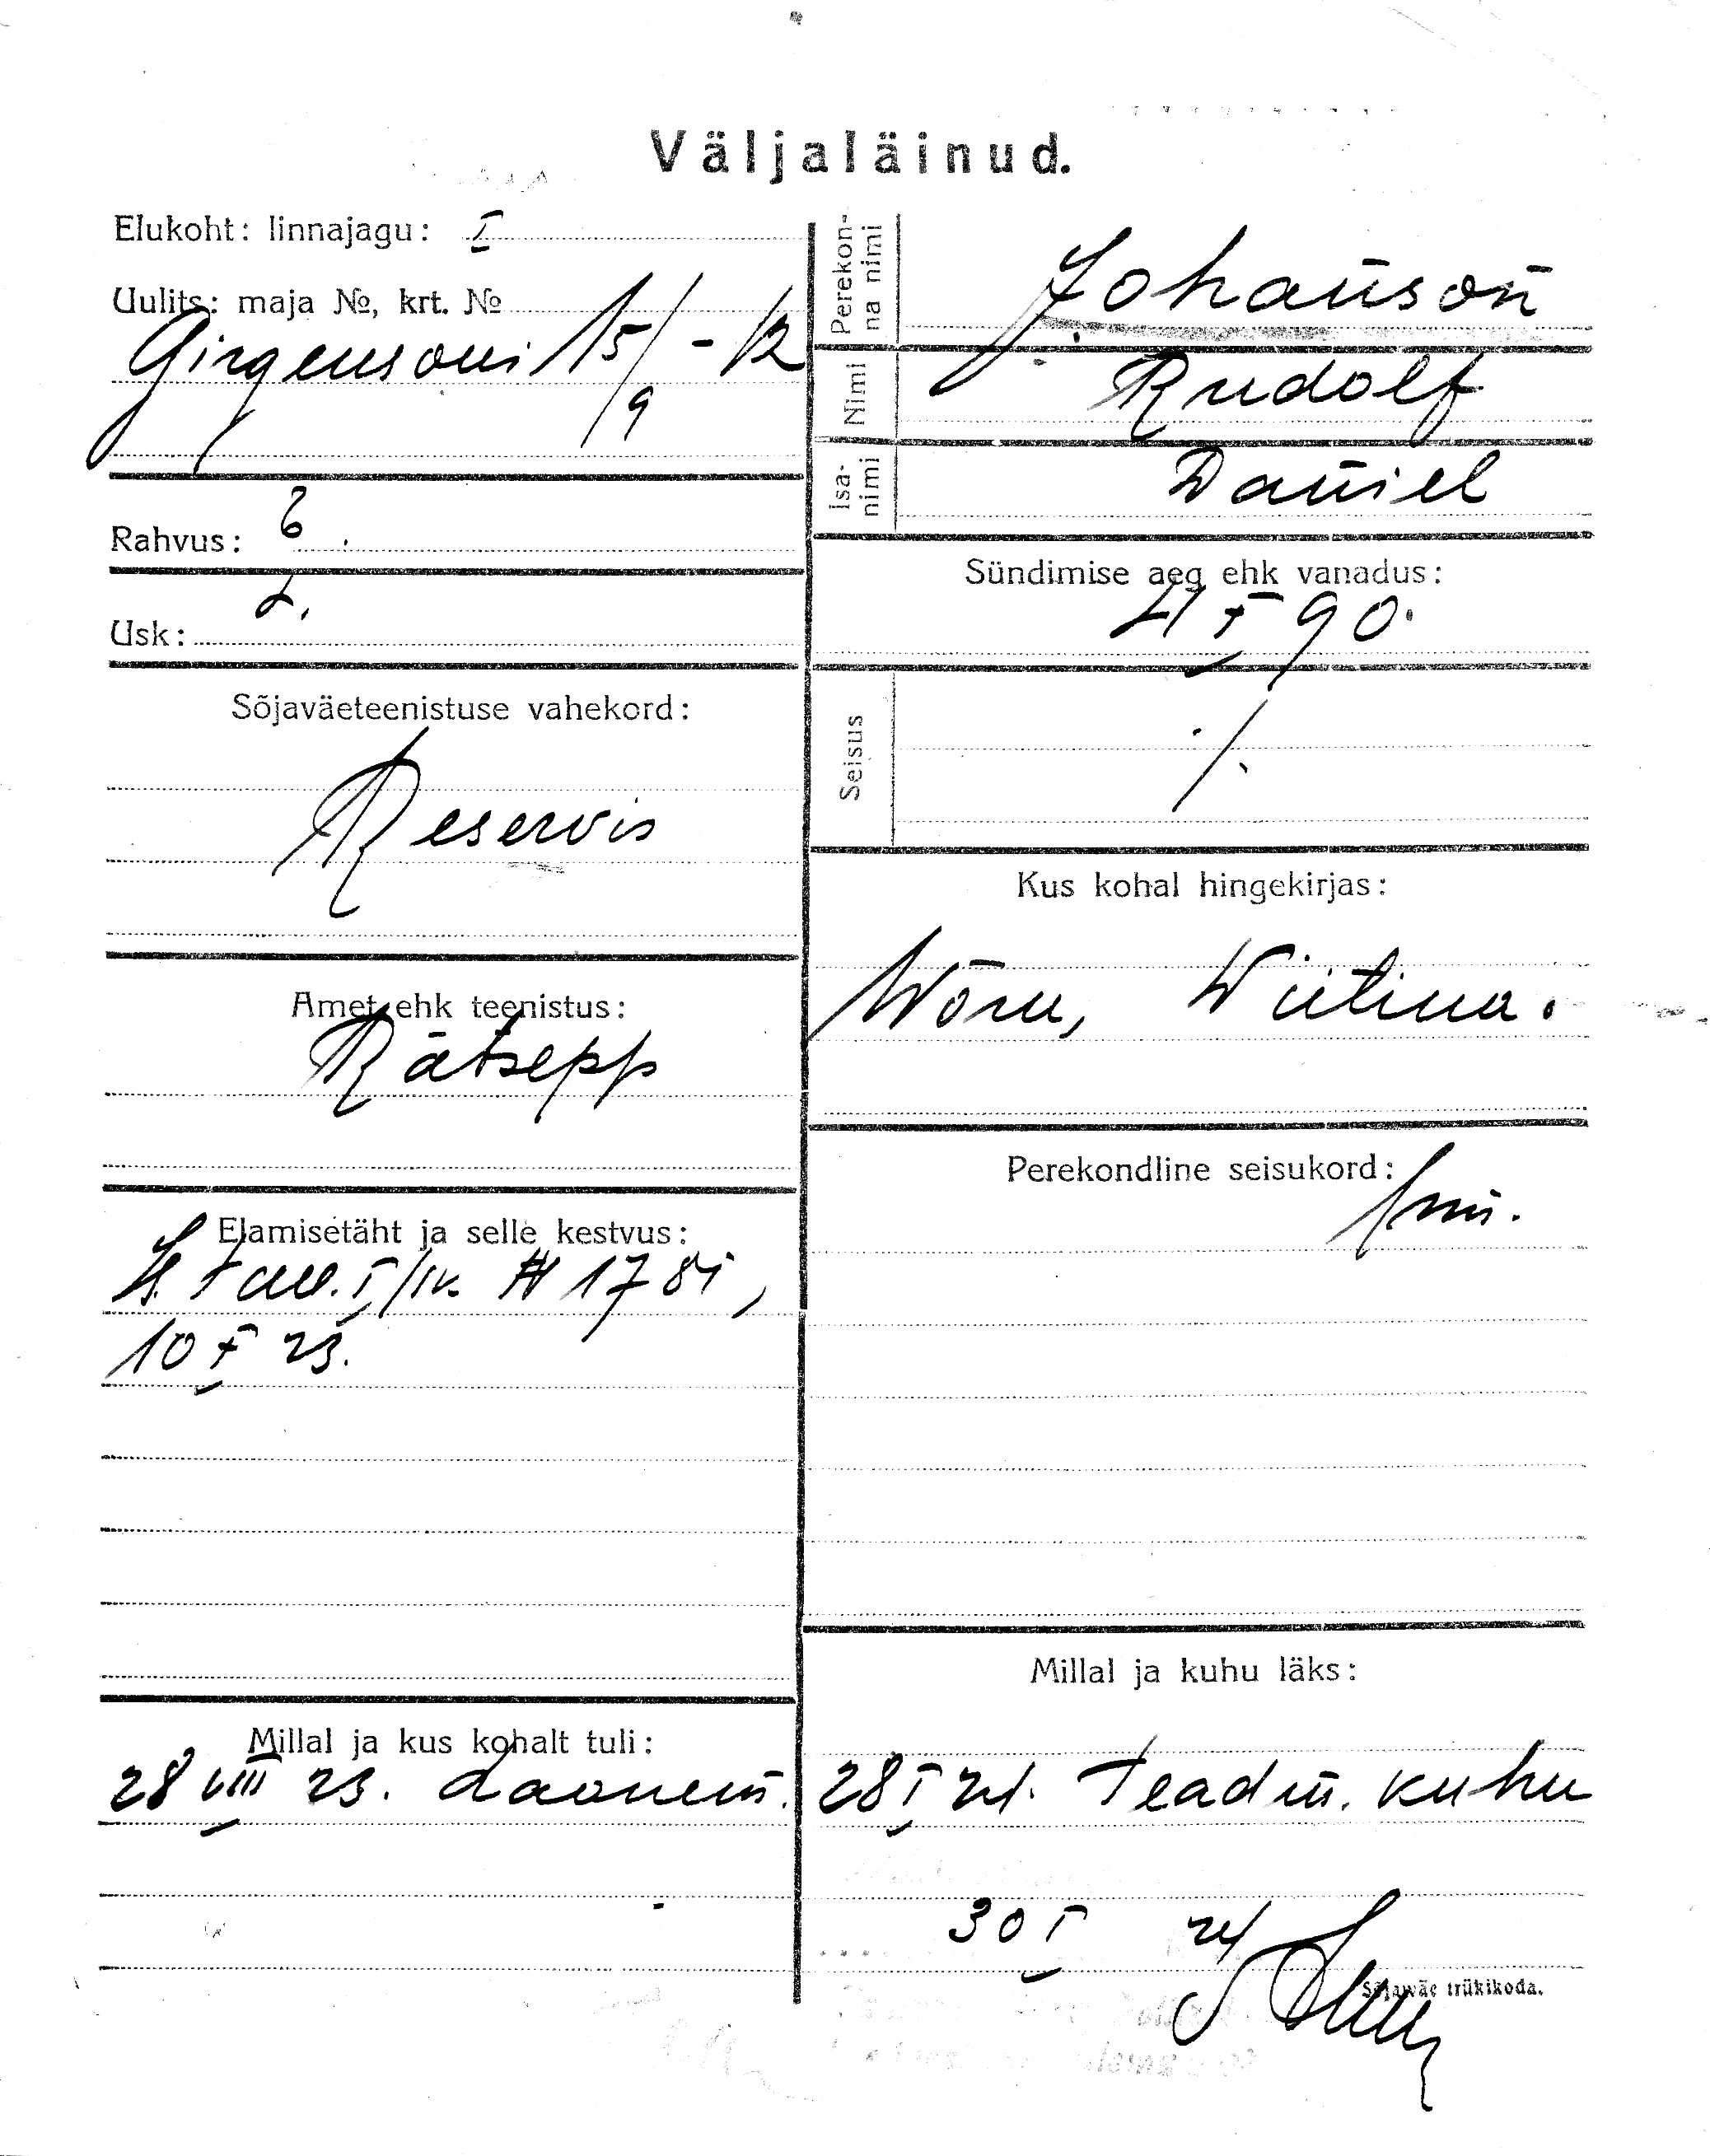 Väljaläinud.
Elukoht: linnajagu: I
Uulits: maja №, krt. №
Girgensoni 15/9 - 12
Rahvus: E.
Usk: L.
Sõjaväeteenistuse vahekord:
Reservis
Amet ehk teenistus:
Rätsepp
Elamisetäht ja selle kestvus:
I/IV. № 1781,
10 X 23.
Millal ja kus kohalt tuli:
28 VIII 23.
Perekonna nimi
Johanson
Nimi
Rudolf
Isanimi
Daniel
Sündimise aeg ehk vanadus:
X 90.
Seisus
./.
Kus kohal hingekirjas:
Wõru, Wiitina.
Perekondline seisukord:
Millal ja kuhu läks:
28 I 24. Teadm. kuhu
30 I 24
Sõjawäe trükikoda.